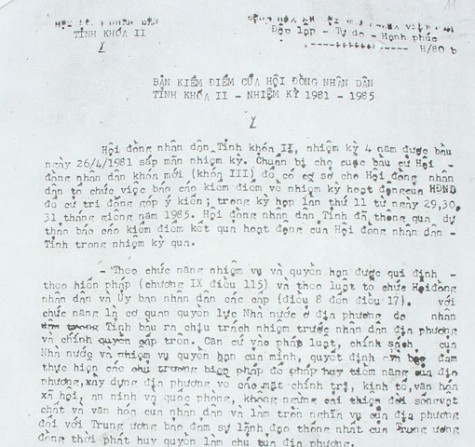 HỘI ĐỒNG NHÂN DÂN
TỈNH KHÓA II
11
Độc lập - Tự do - Hạnh phúc
H/80 b
BẢN KIỂM ĐIỂM CỦA HỘI ĐỒNG NHÂN DÂN
TỈNH KHÓA II - NHIỆM KỲ 1981 - 1985
Hội đồng nhân dân Tỉnh khóa II, nhiệm kỳ 4 năm được bầu
ngày 26/4/1981 sắp mãn nhiệm kỳ. Chuẩn bị cho cuộc bầu cử Hội -
đồng nhân dân khóa mới (khóa III) để có cơ sở cho Hội đồng nhân
dân tổ chức việc báo cáo kiểm điểm về nhiệm kỳ hoạt động của HĐND
để cử tri đóng góp ý kiến; trong kỳ họp lần thứ 11 từ ngày 29,30,
31 tháng giêng năm 1985. Hội đồng nhân dân Tỉnh đã thông qua, dự
thảo báo cáo kiểm điểm kết quả hoạt động của Hội đồng nhân dân -
Tỉnh trong nhiệm kỳ qua.
-Theo chức năng nhiệm vụ và quyền hạn được qui định -
theo hiến pháp (chương IX điều 115) và theo luật tổ chức Hội đồng
nhân dân và Ủy ban nhân dân các cấp (điều 8 đến điều 17). với
chức năng là cơ quan quyền lực Nhà nước ở địa phương do nhân
Tỉnh bầu ra chịu trách nhiệm trước nhân dân địa phương
và chính quyền cấp trên. Căn cứ vào pháp luật, chính sách của
Nhà nước và nhiệm vụ quyền hạn của mình, quyết định và bảo đảm
thực hiện các chủ trương biện pháp để phát huy tiềm năng của địa
phương, xây dựng địa phương về các mặt chính trị, kinh tế, văn hóa
xã hội, an ninh và quốc phòng, không ngừng cải thiện đời sống vật
chất và văn hóa của nhân dân và làm tròn nghĩa vụ của địa phương
đối với Trung ương bảo đảm sự lãnh đạo thống nhất của Trung ương
đồng thời phát huy quyền làm chủ của địa phương.